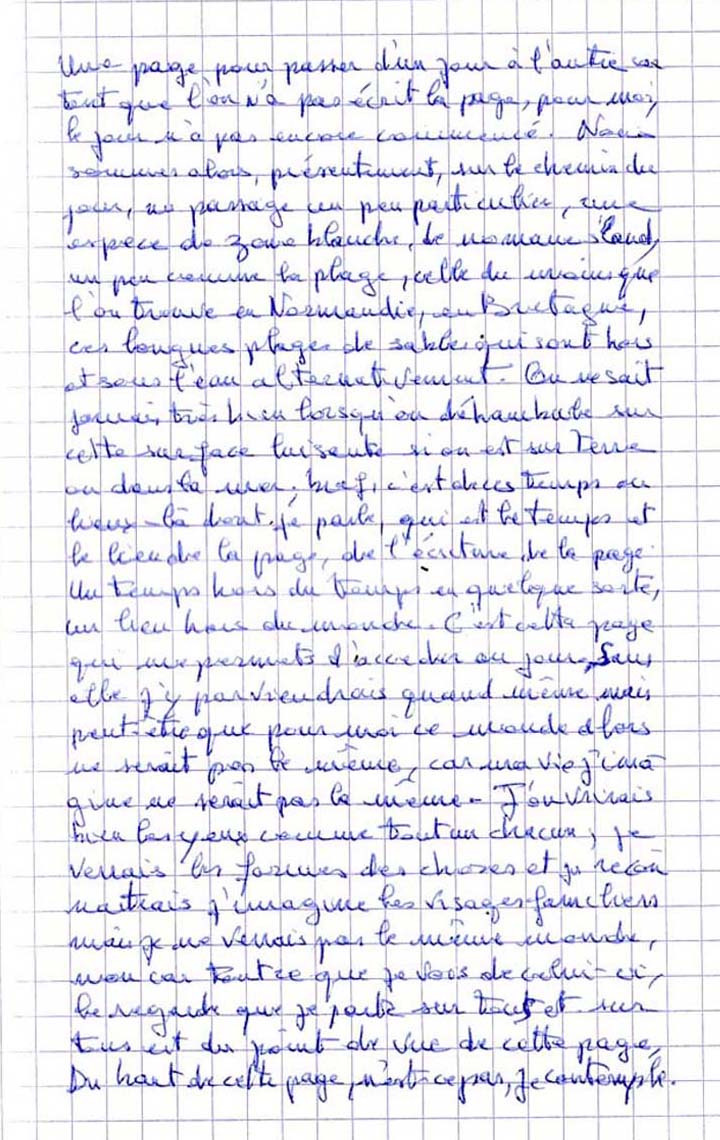 Une page pour passer d'un jour à l'autre car
tant que l'on n'a pas écrit la page, pour moi,
le jour n'a pas encore commencé. Nous
sommes alors, présentement, sur le chemin du
jour, un passage un peu particulier, une
espèce de zone blanche, de nomane's land,
un peu comme la plage, celle du moins que
l'on trouve en Normandie, en Bretagne,
ces longues plages de sables qui sont hors
et sous l'eau alternativement. On ne sait
jamais très bien lorsqu'on déhambule sur
cette surface luisante si on est sur Terre
ou dans la mer; bref, c'est de ces temps ou
lieux-là dont je parle, qui est le temps et
le lieu de la page, de l'écriture de la page.
Un temps hors du temps en quelque sorte,
un lieu hors du monde. C'est cette page
qui me permets d'accéder au jour. Sans
elle j'y parviendrais quand même mais
peut-être que pour moi ce monde alors
ne serait pas le même, car ma vie j'ima
gine ne serait pas la même. J'ouvrirais
bien les yeux comme tout un chacun, je
verrais les formes des choses et je recon
naitrais j'imagine les visages familiers
mais je ne verrais pas le même monde,
non car tout ce que je vois de celui-ci,
le regard que je porte sur tout et sur
tous est du point de vue de cette page,
Du haut de cette page, n'est-ce pas, je contemple.